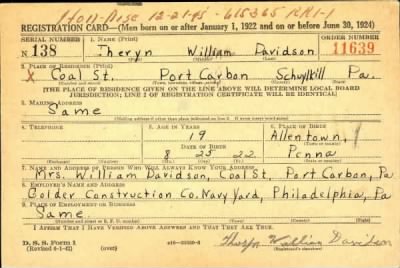 Hon-Disc 12-21-45-615365 RR1-1
REGISTRATION CARD—(Men born on or after January 1, 1922 and on or before June 30, 1924)
SERIAL NUMBER 1. NAME (Print) ORDER NUMBER
N 138 Theryn William Davidson 11639
2. PLACE OF RESIDENCE (Print)
X Coal St. Port Carbon Schuylkill Pa.
[THE PLACE OF RESIDENCE GIVEN ON THE LINE ABOVE WILL DETERMINE LOCAL BOARD
JURISDICTION; LINE 2 OF REGISTRATION CERTIFICATE WILL BE IDENTICAL]
3. MAILING ADDRESS
Same
[Mailing address if other than place indicated on line 2. If same insert word same]
4. TELEPHONE 5. AGE IN YEARS 6. PLACE OF BIRTH
19 Allentown,
DATE OF BIRTH
8 25 22 Penna
7. NAME AND ADDRESS OF PERSON WHO WILL ALWAYS KNOW YOUR ADDRESS
Mrs. William Davidson, Coal St., Port Carbon, Pa
8. EMPLOYER'S NAME AND ADDRESS
Golder Construction Co. Navy Yard, Philadelphia, Pa
9. PLACE OF EMPLOYMENT OR BUSINESS
Same.
I AFFIRM THAT I HAVE VERIFIED ABOVE ANSWERS AND THAT THEY ARE TRUE.
D. S. S. Form 1
(Revised 6-1-42) (over) Theryn William Davidson